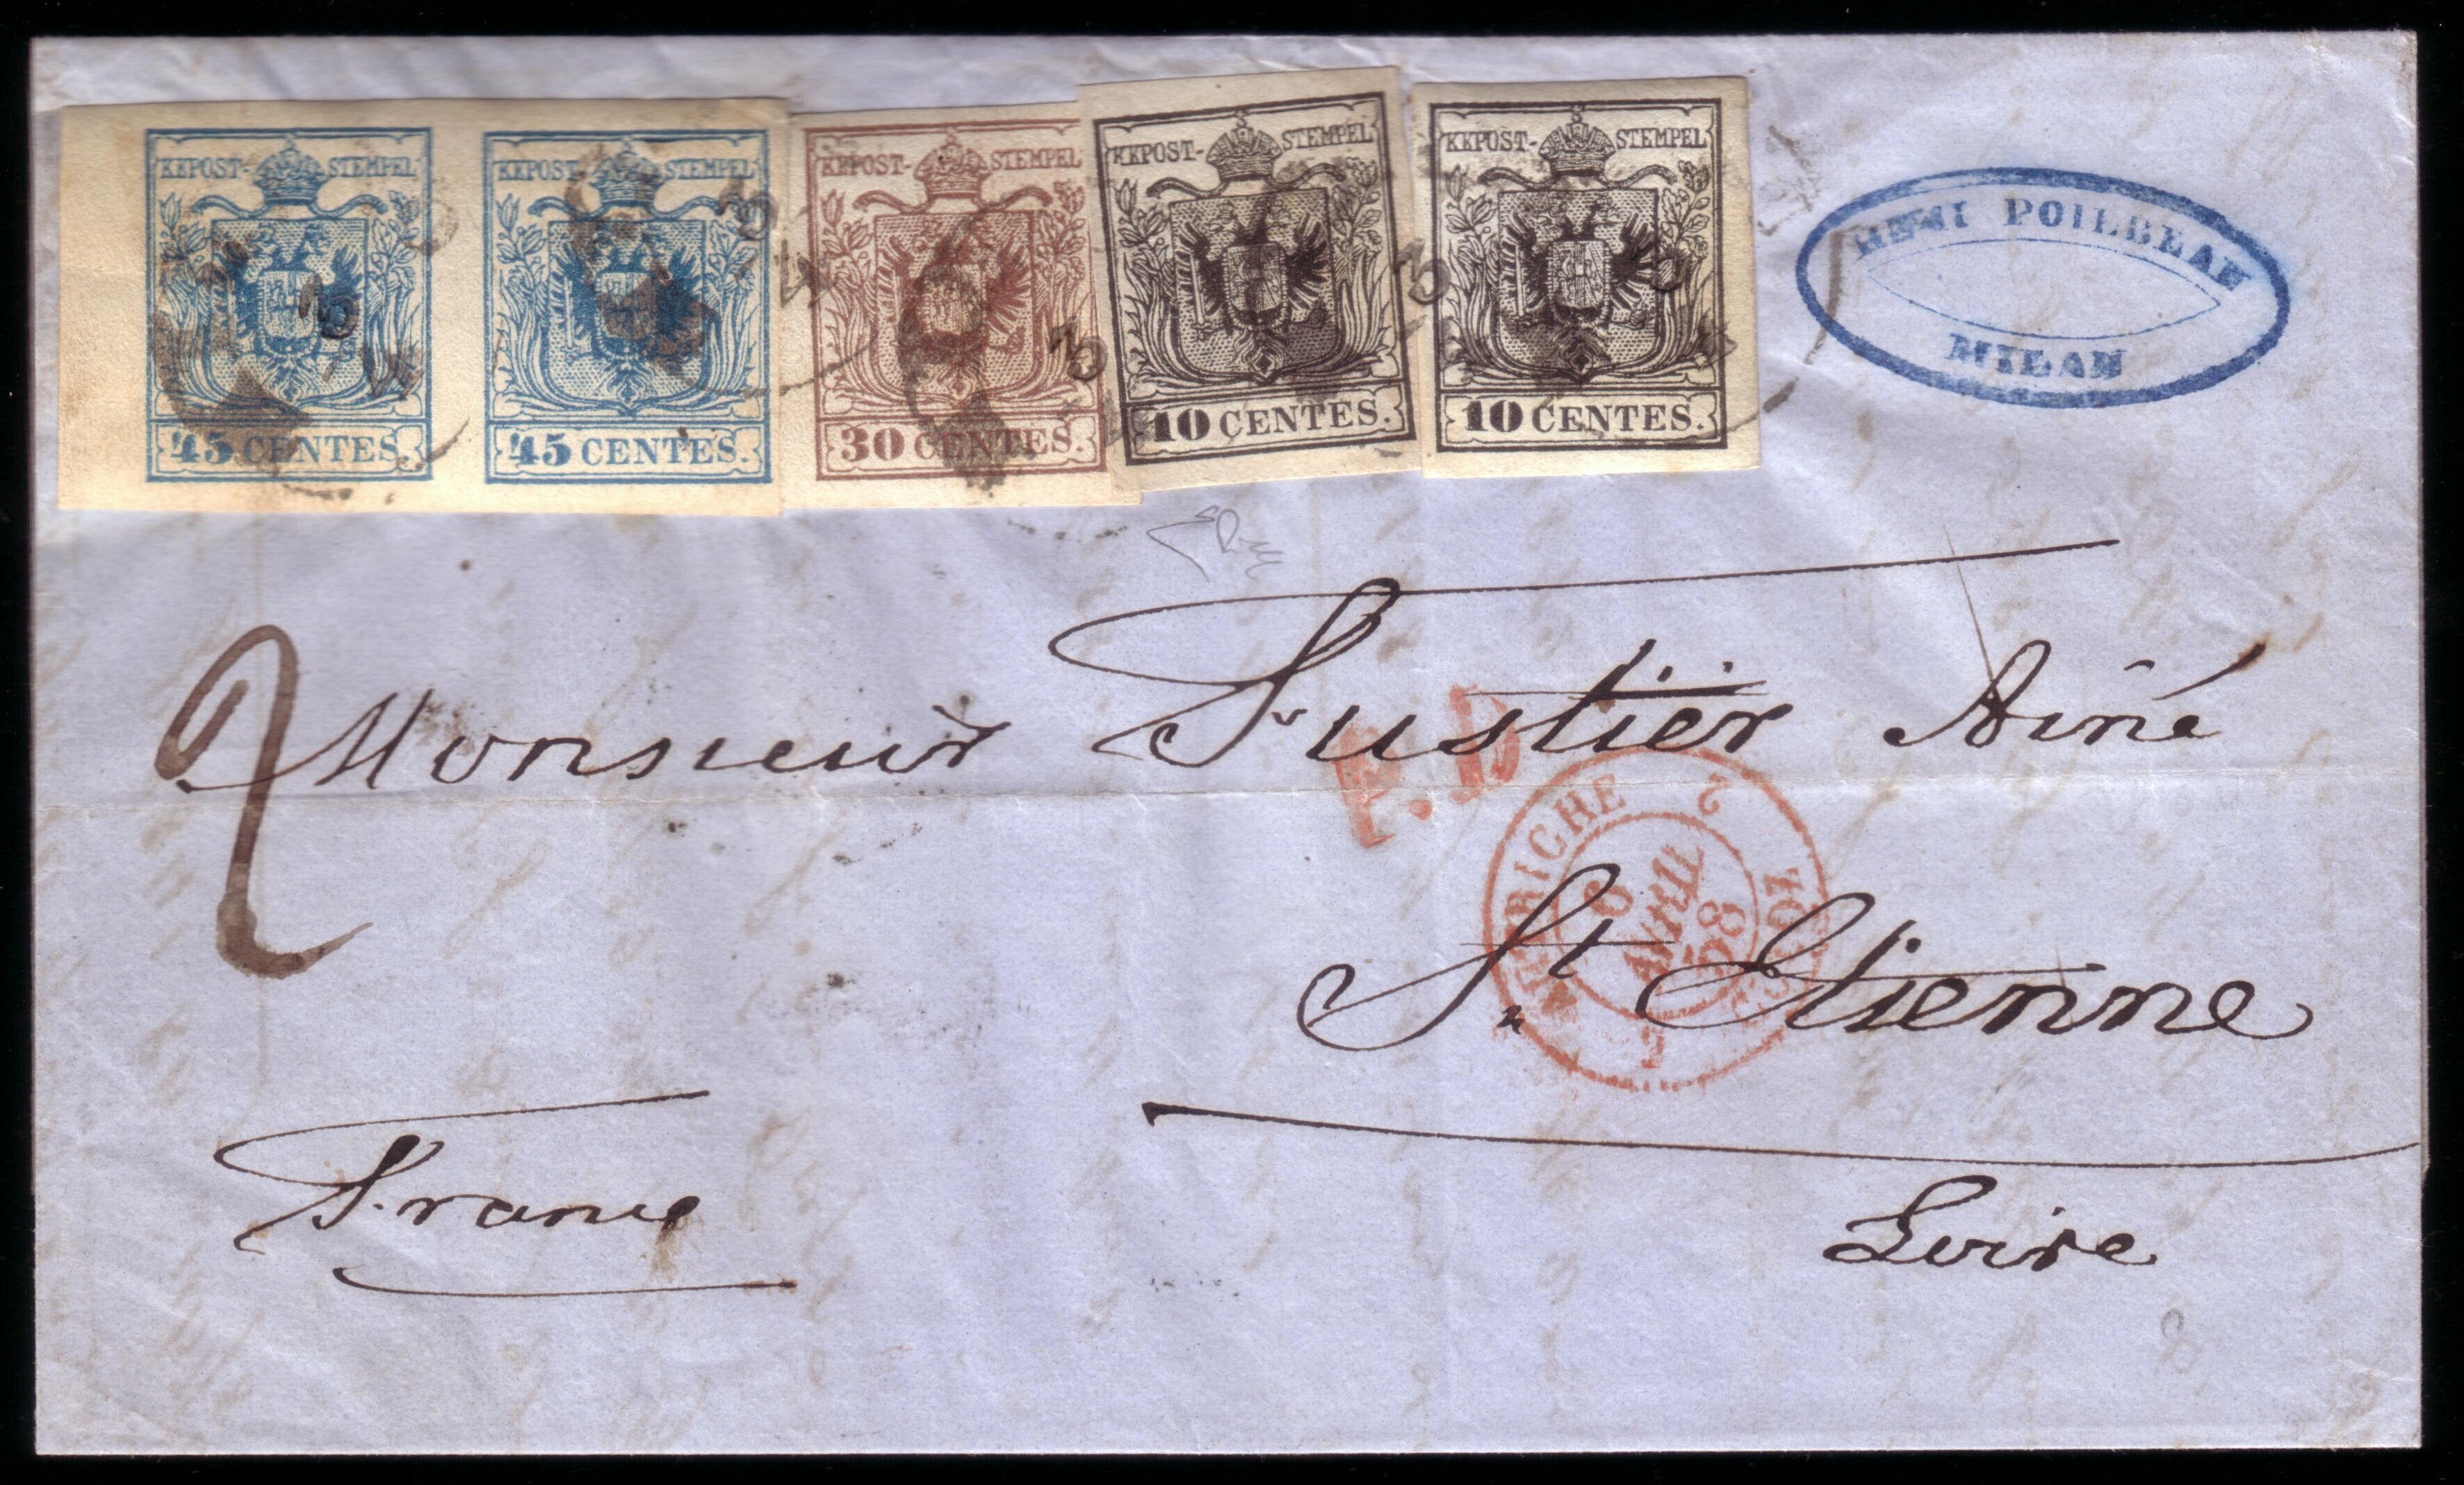 KKPOST- STEMPEL
45 CENTES.
KKPOST- STEMPEL
45 CENTES.
KKPOST- STEMPEL
30 CENTES.
KKPOST- STEMPEL
10 CENTES.
KKPOST- STEMPEL
10 CENTES.
HENRI POILBEAU
MILAN
2
Monsieur Fustier Ainé
P.D
AUTRICHE 2 CULOZ 2
6
AVRIL
58
St Etienne
Loire
France